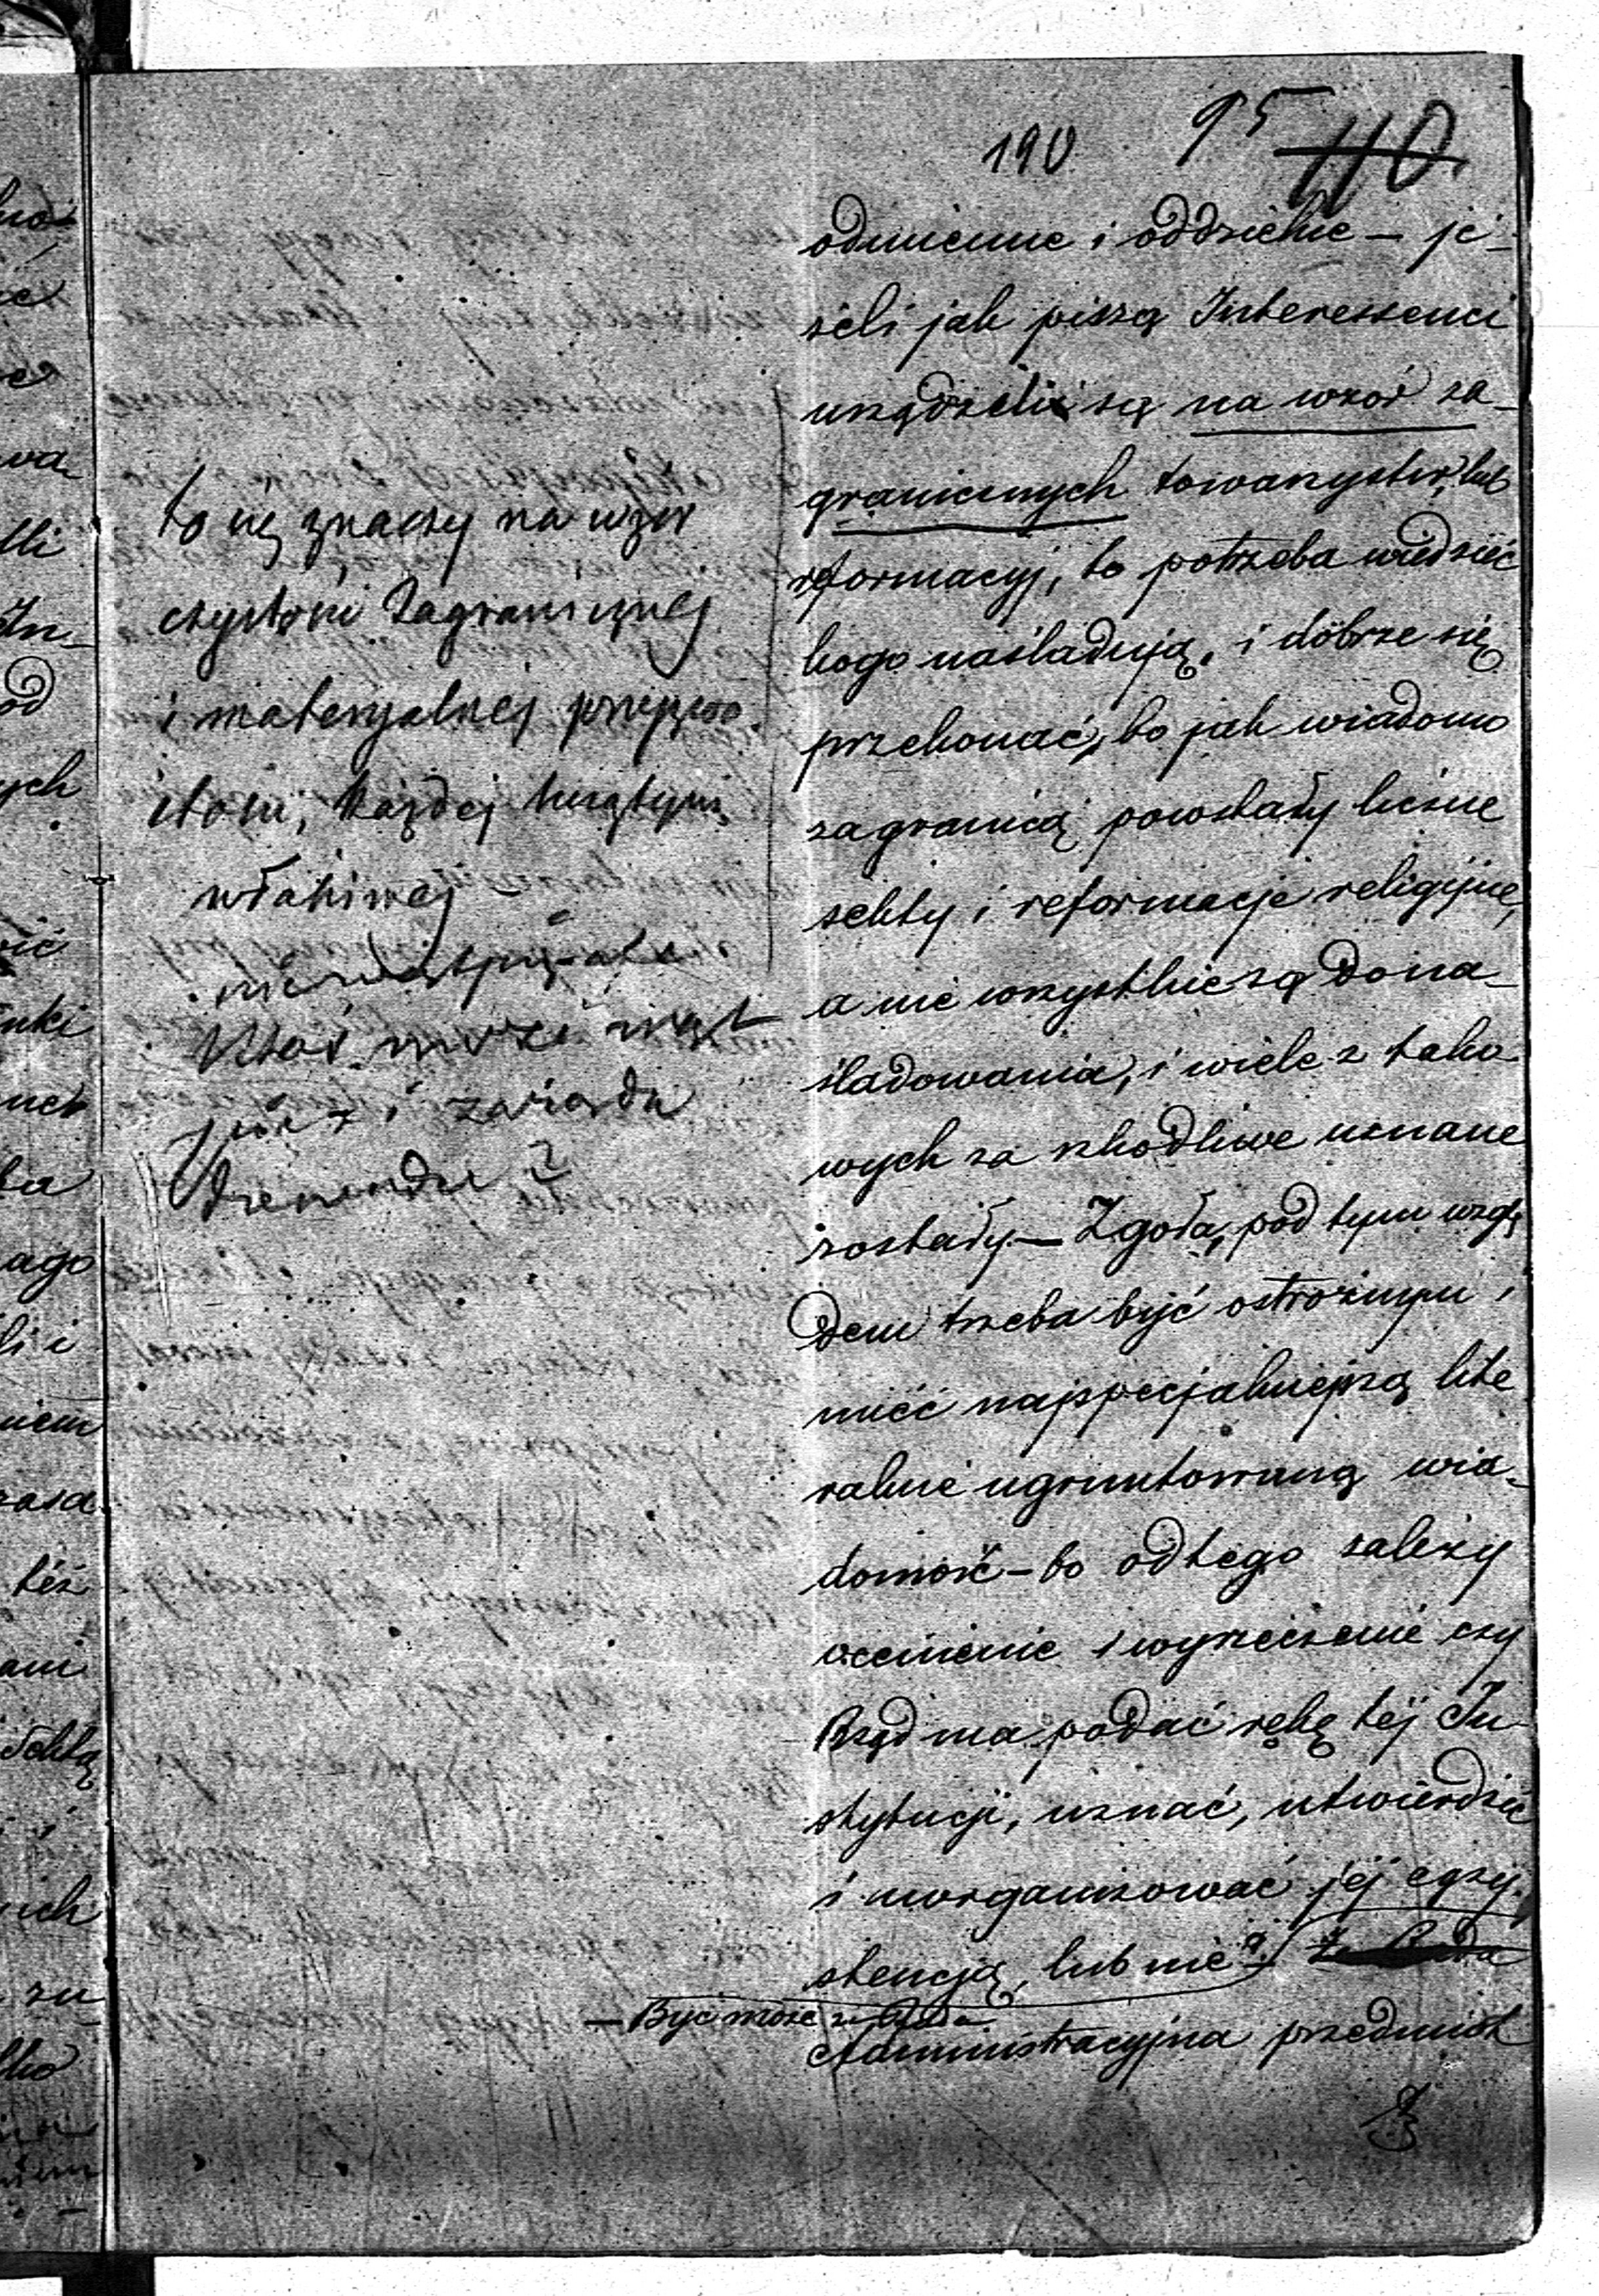 190 95 110.
odmienne i oddzielne – je-
żeli jak piszą Interessenci
urządzeli są na wzór za-
granicznych towarzystw, lub
reformacyj, to potrzeba wiedzieć
kogo naśladują, i dobrze się
przekonać, bo jak wiadomo
zagranicą powstały liczne
sekty i reformacje religijne,
a nie wszystkie są do na-
śladowania, i wiele z tako
wych za szkodliwe uznane
zostały – Zgoła, pod tym wzglę
dem trzeba być ostrożnym i
mieć najspecjalniejszą lite
ralnie ugruntowaną wia-
domość – bo od tego zależy
ocenienie i wyrzeczenie czy
Rząd ma podać rękę tej In-
stytucji, uznać, utwierdzić
i uorganizować jej egzy-
stencją, lub nie?
– Być może że Rada
Administracyjna przedmiot
to się znaczy na wzór
czystości zagranicznej
i materyalnej przyzwo
itości, każdej świątyni
właściwej
Ktoś może wąt